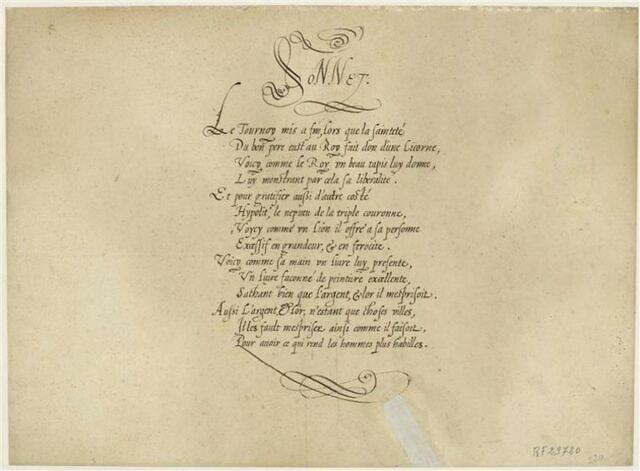 SONNET.
Le Tournoy mis a fin, lors que la sainteté
Du bon pere eust au Roy fait don d'une Licorne,
Voicy comme le Roy vn beau tapis luy donne,
Luy monstrant par cela sa liberalité.
Et pour gratifier aussi d'autre costé
Hypolit, le nepueu de la triple couronne,
Voycy comme vn Lion il offre a sa personne
Excessif en grandeur, & en ferocité.
Voicy comme sa main vn liure luy presente,
Vn liure façonné de peinture excellente,
Sachant bien que l'argent, & l'or il mesprisoit.
Aussi L'argent, & l'or, n'estant que choses villes,
Il les fault mespriser ainsi comme il faisoit,
Pour auoir ce qui rend les hommes plus habilles.
RF 29720